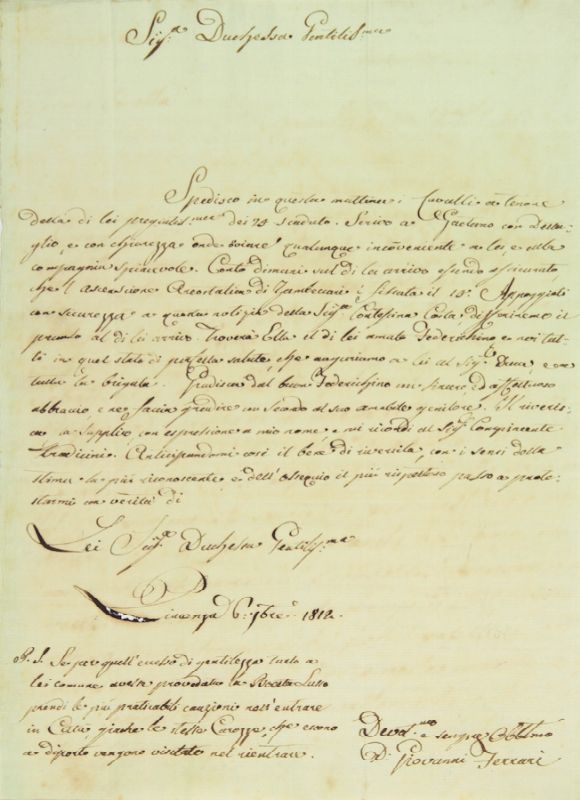 Sig.ª Duchessa Gentilis.ma
Spedisco in questa mattina i Cavalli a tenore
della di lei pregiatis.ma dei 28 scaduto. Scrivo a Gaetano con
e con chiarezza onde qualunque inconveniente a lei e alla
compagnia spiacevole. Conto dimani sul di lei arrivo essendo assicurato
che l'Ascensione Areostatica di Zambeccari è fissata il Appoggiati
con sicurezza a questa notizia della Sig.ª Contessina Costa, il
pranzo al di lei arrivo. Troverà Ella il di lei amato Foderichino e noi tut-
ti in quel stato di perfetta salute, che auguriamo a lei al Sig.r Duca, e a
tutta la brigata. Gradisca dal buon Foderichino un sincero ed affettuoso
abbraccio, e ne faccia gradire un secondo al suo amabile genitore. Il riveris-
ca a supplico con espressione a mio nome e mi ricordi al Sig.r
Anticipandomi così il bene di riverirla, con i sensi della
stima la più riconoscente e dell'ossequio il più rispettoso passo a prote-
starmi con verità di
Lei Sig.ª Duchessa Gentilis.ma
Piacenza 6. 7bre 1812.
P. S. Se per quell'eccesso di gentilezza tutto a
lei comune avesse provveduto la
prendi le più praticabili cauzioni nell'entrare
in Città, giacchè le stesse Carozze, che escono
a diporto vengono visitate nel rientrare.
Devot.mo e sempre Obblmo
D. Giovanni Ferrari